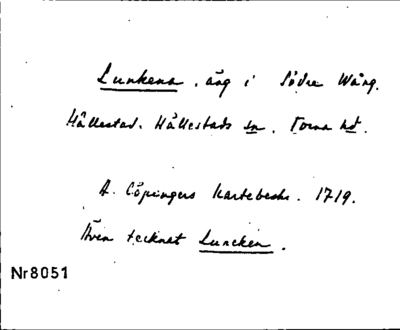 Lunkena, äng i Södra Wång.
Hällestad. Hällestads sn. Torna hd.
A. Cöpingers kartebeskr. 1719.
Även tecknat Luncken.
Nr8051